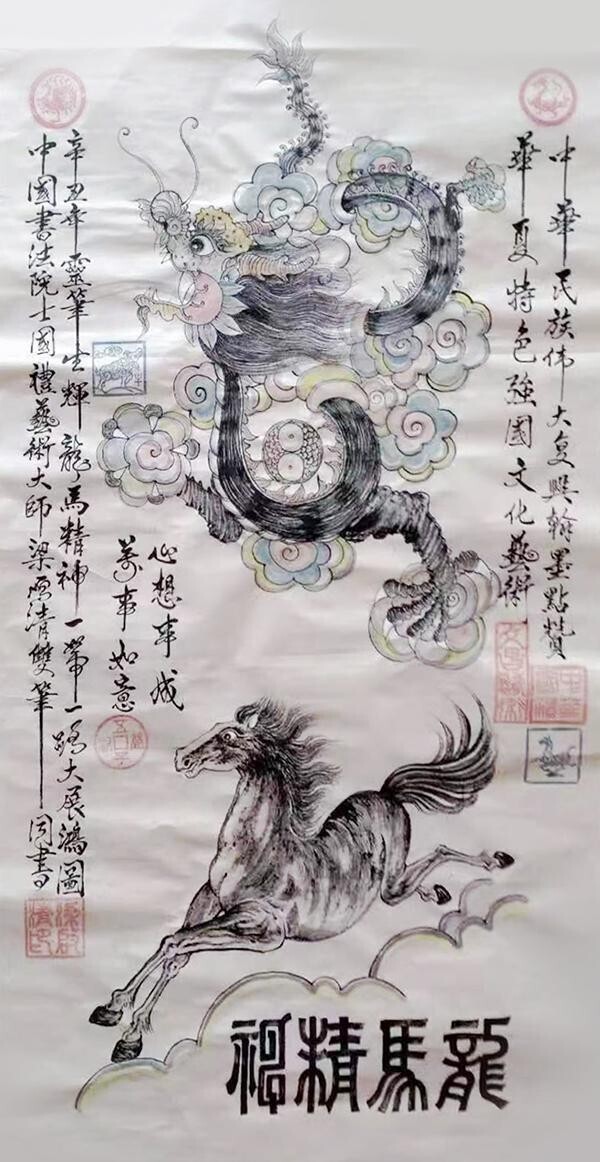 中華民族伟大复興翰墨點贊
華夏特色強國文化藝術
心想事成
萬事如意
辛丑年靈筆生輝龍馬精神一帶一路大展鴻圖
中國書法院士國禮藝術大師梁启清雙筆同書
龍馬精神